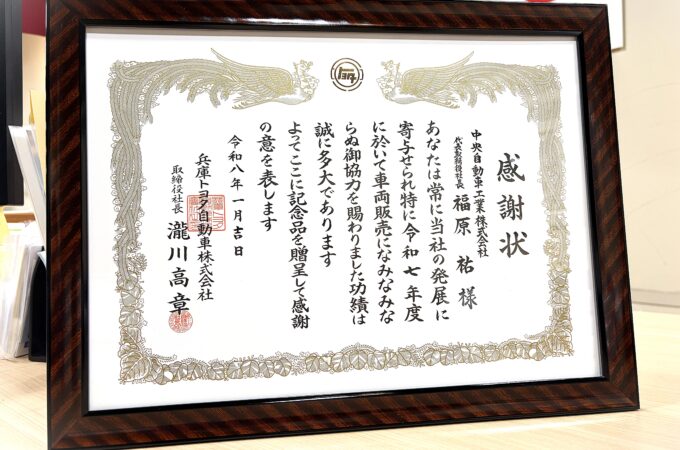 感謝状
中央自動車工業株式会社
代表取締役社長 福原 祐 様
あなたは常に当社の発展に
寄与せられ特に令和七年度
に於いて車両販売になみなみな
らぬ御協力を賜わりました功績は
誠に多大であります
よってここに記念品を贈呈して感謝
の意を表します
令和八年一月吉日
兵庫トヨタ自動車株式会社
取締役社長 瀧川高章